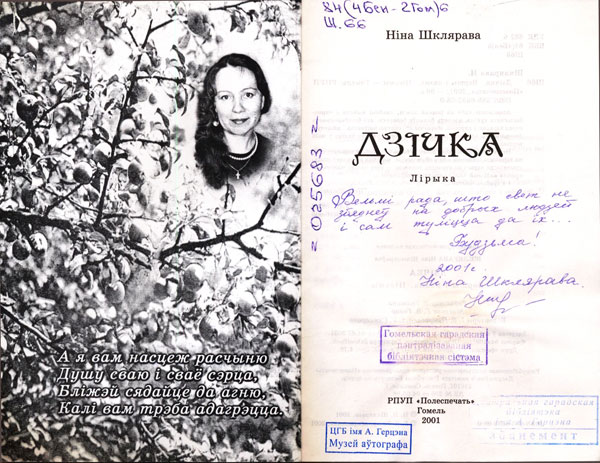 А я вам насцеж расчыню
Душу сваю і сваё сэрца,
Бліжэй сядайце да агню,
Калі вам трэба адагрэцца.
84(4Беи-2Гом)6
Ш. 66
Ніна Шклярава
ДЗІЧКА
Лірыка
№ 025683
Вельмі рада, што свет не
збяднеў на добрых людзей
і сам туліцца да іх...
Будзьма!
2001г.
Ніна Шклярава.
Гомельская гарадская
цэнтралізаваная
бібліятэчная сістэма
РПУП «Полеспечать»
Гомель
2001
ЦГБ імя А. Герцэна
Музей аўтографа
гарадская
бібліятэка
А. Герцэна
Абанемент